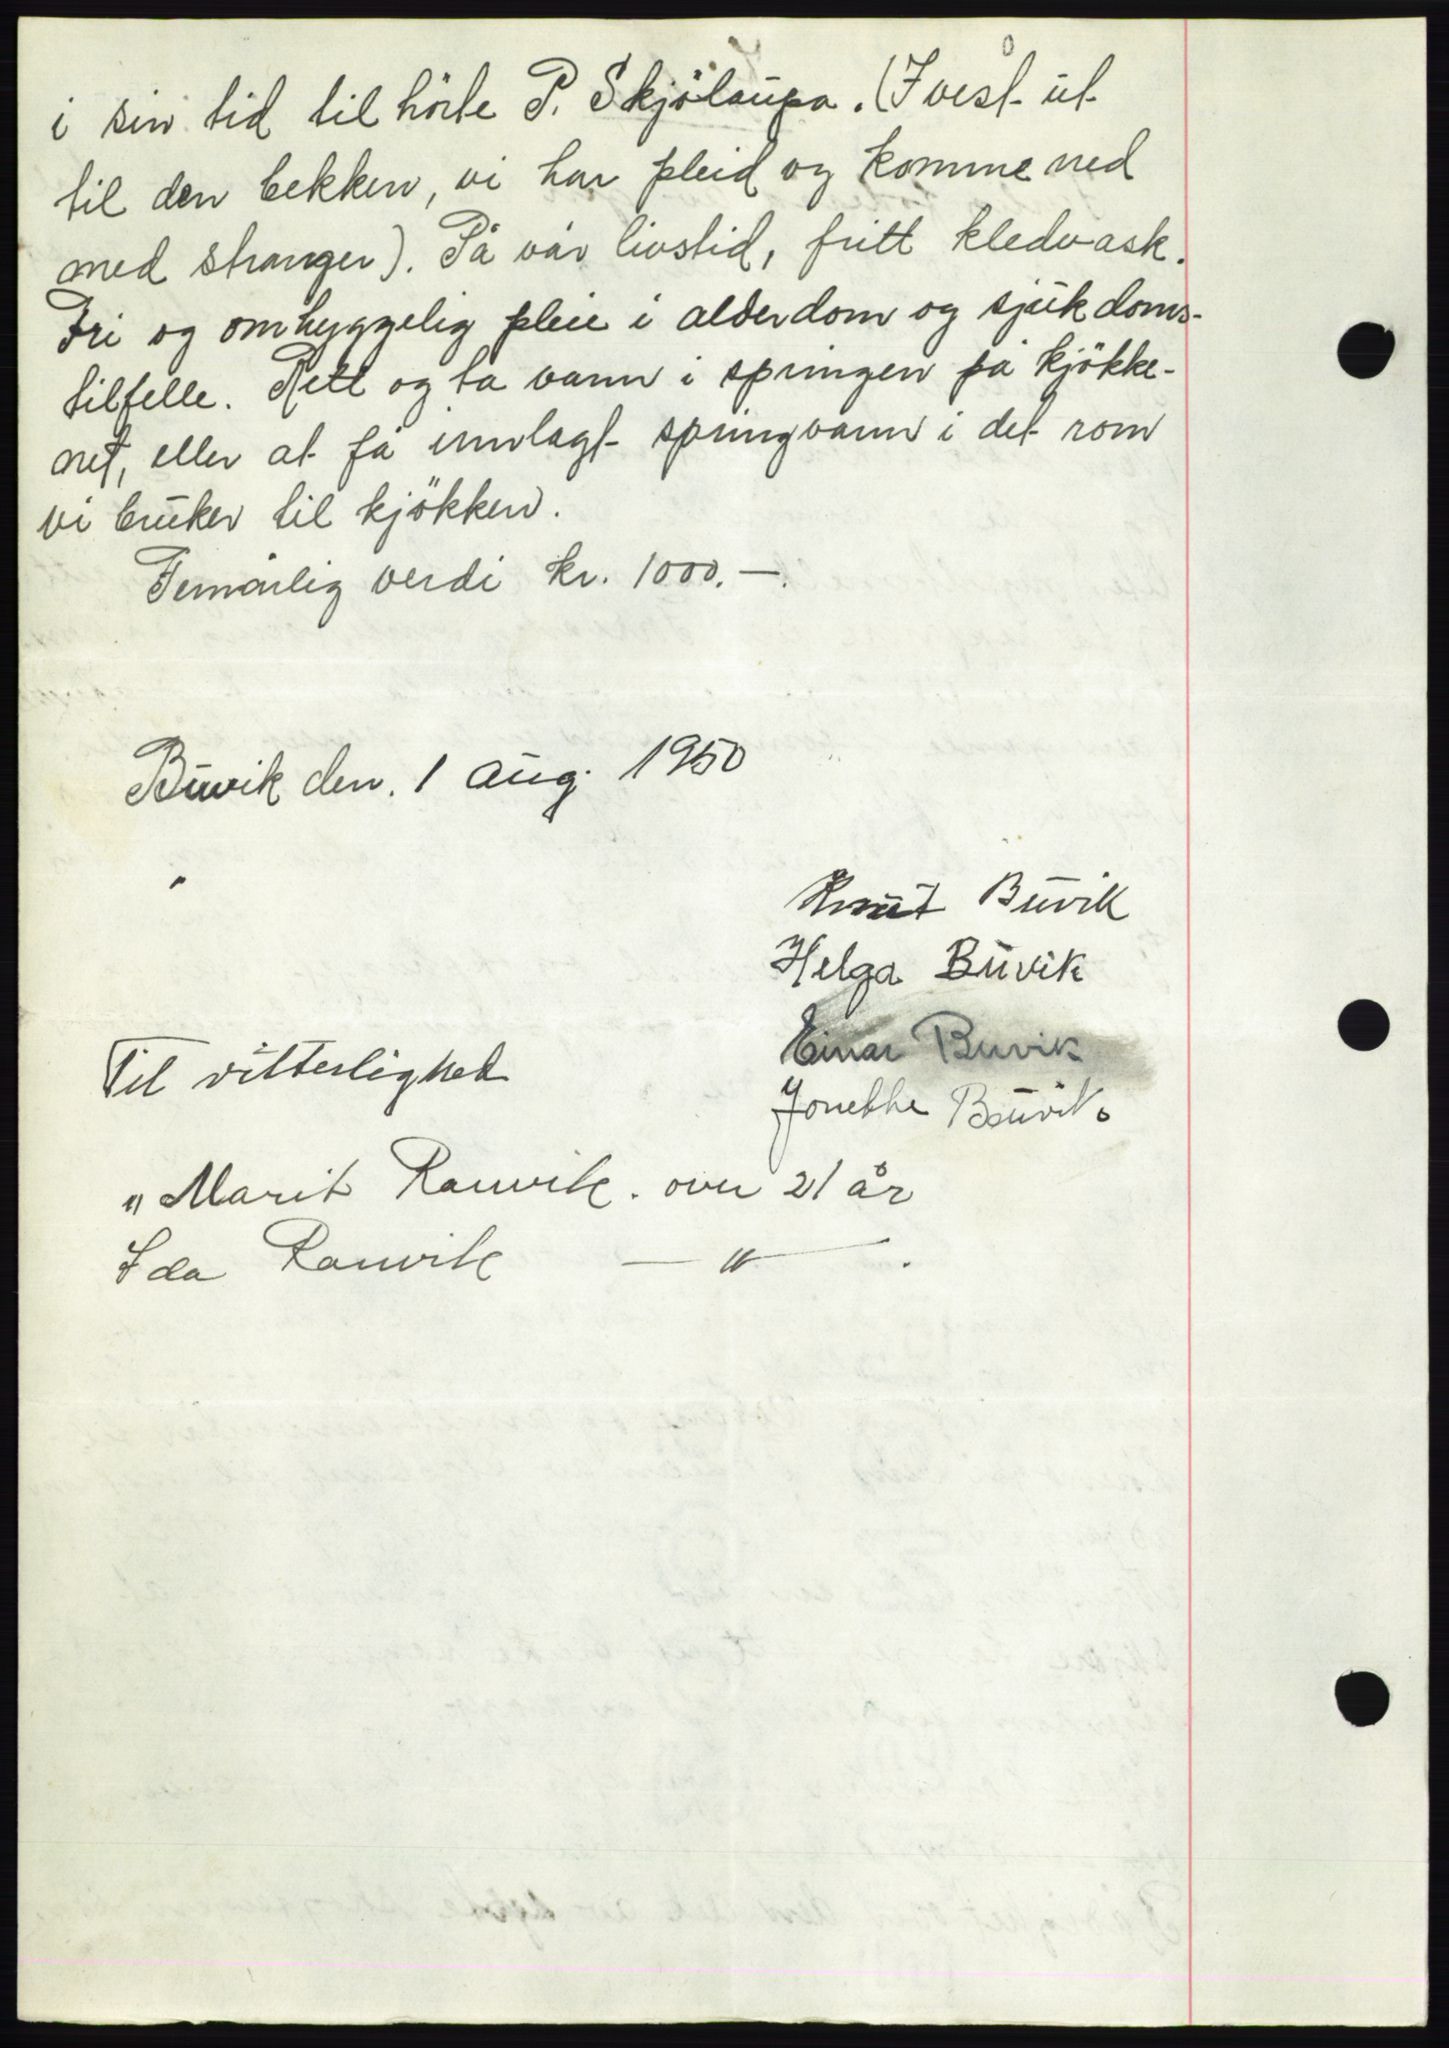 i sin tid til hörte P. Skjölaupa. (I vest ut
til den bekken, vi har pleid og komme ned
med stranger). På vår livstid, fritt kledvask.
Fri og omhyggelig pleie i alderdom og sjukdoms-
tilfelle. Rett og ta vann i springen på kjökke-
net, eller at få innlagt springvann i det rom
vi bruker til kjökken.
Femårlig verdi kr. 1000.—.
Buvik den. 1 aug. 1950
Knut Buvik
Helga Buvik
Einar Buvik
Til vitterlighed
Jonethe Buvik.
" Marit Ranvik. over 21 år
Ida Ranvik — " — .